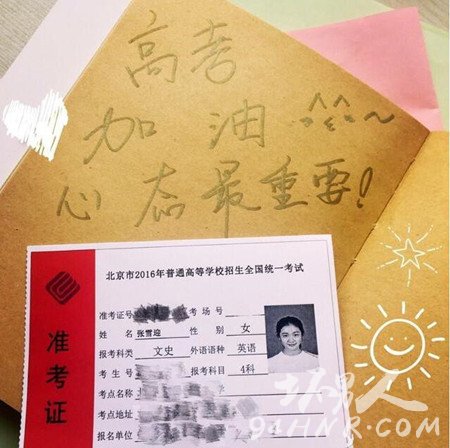 高考
加油
心态最重要!
北京市2016年普通高等学校招生全国统一考试
准考证
准考证号 考场号
姓名 张雪迎 性别 女
报考科类 文史 外语语种 英语
考生号 报考科目 4科
考点名称
考点地址
报名单位
94HNR.COM